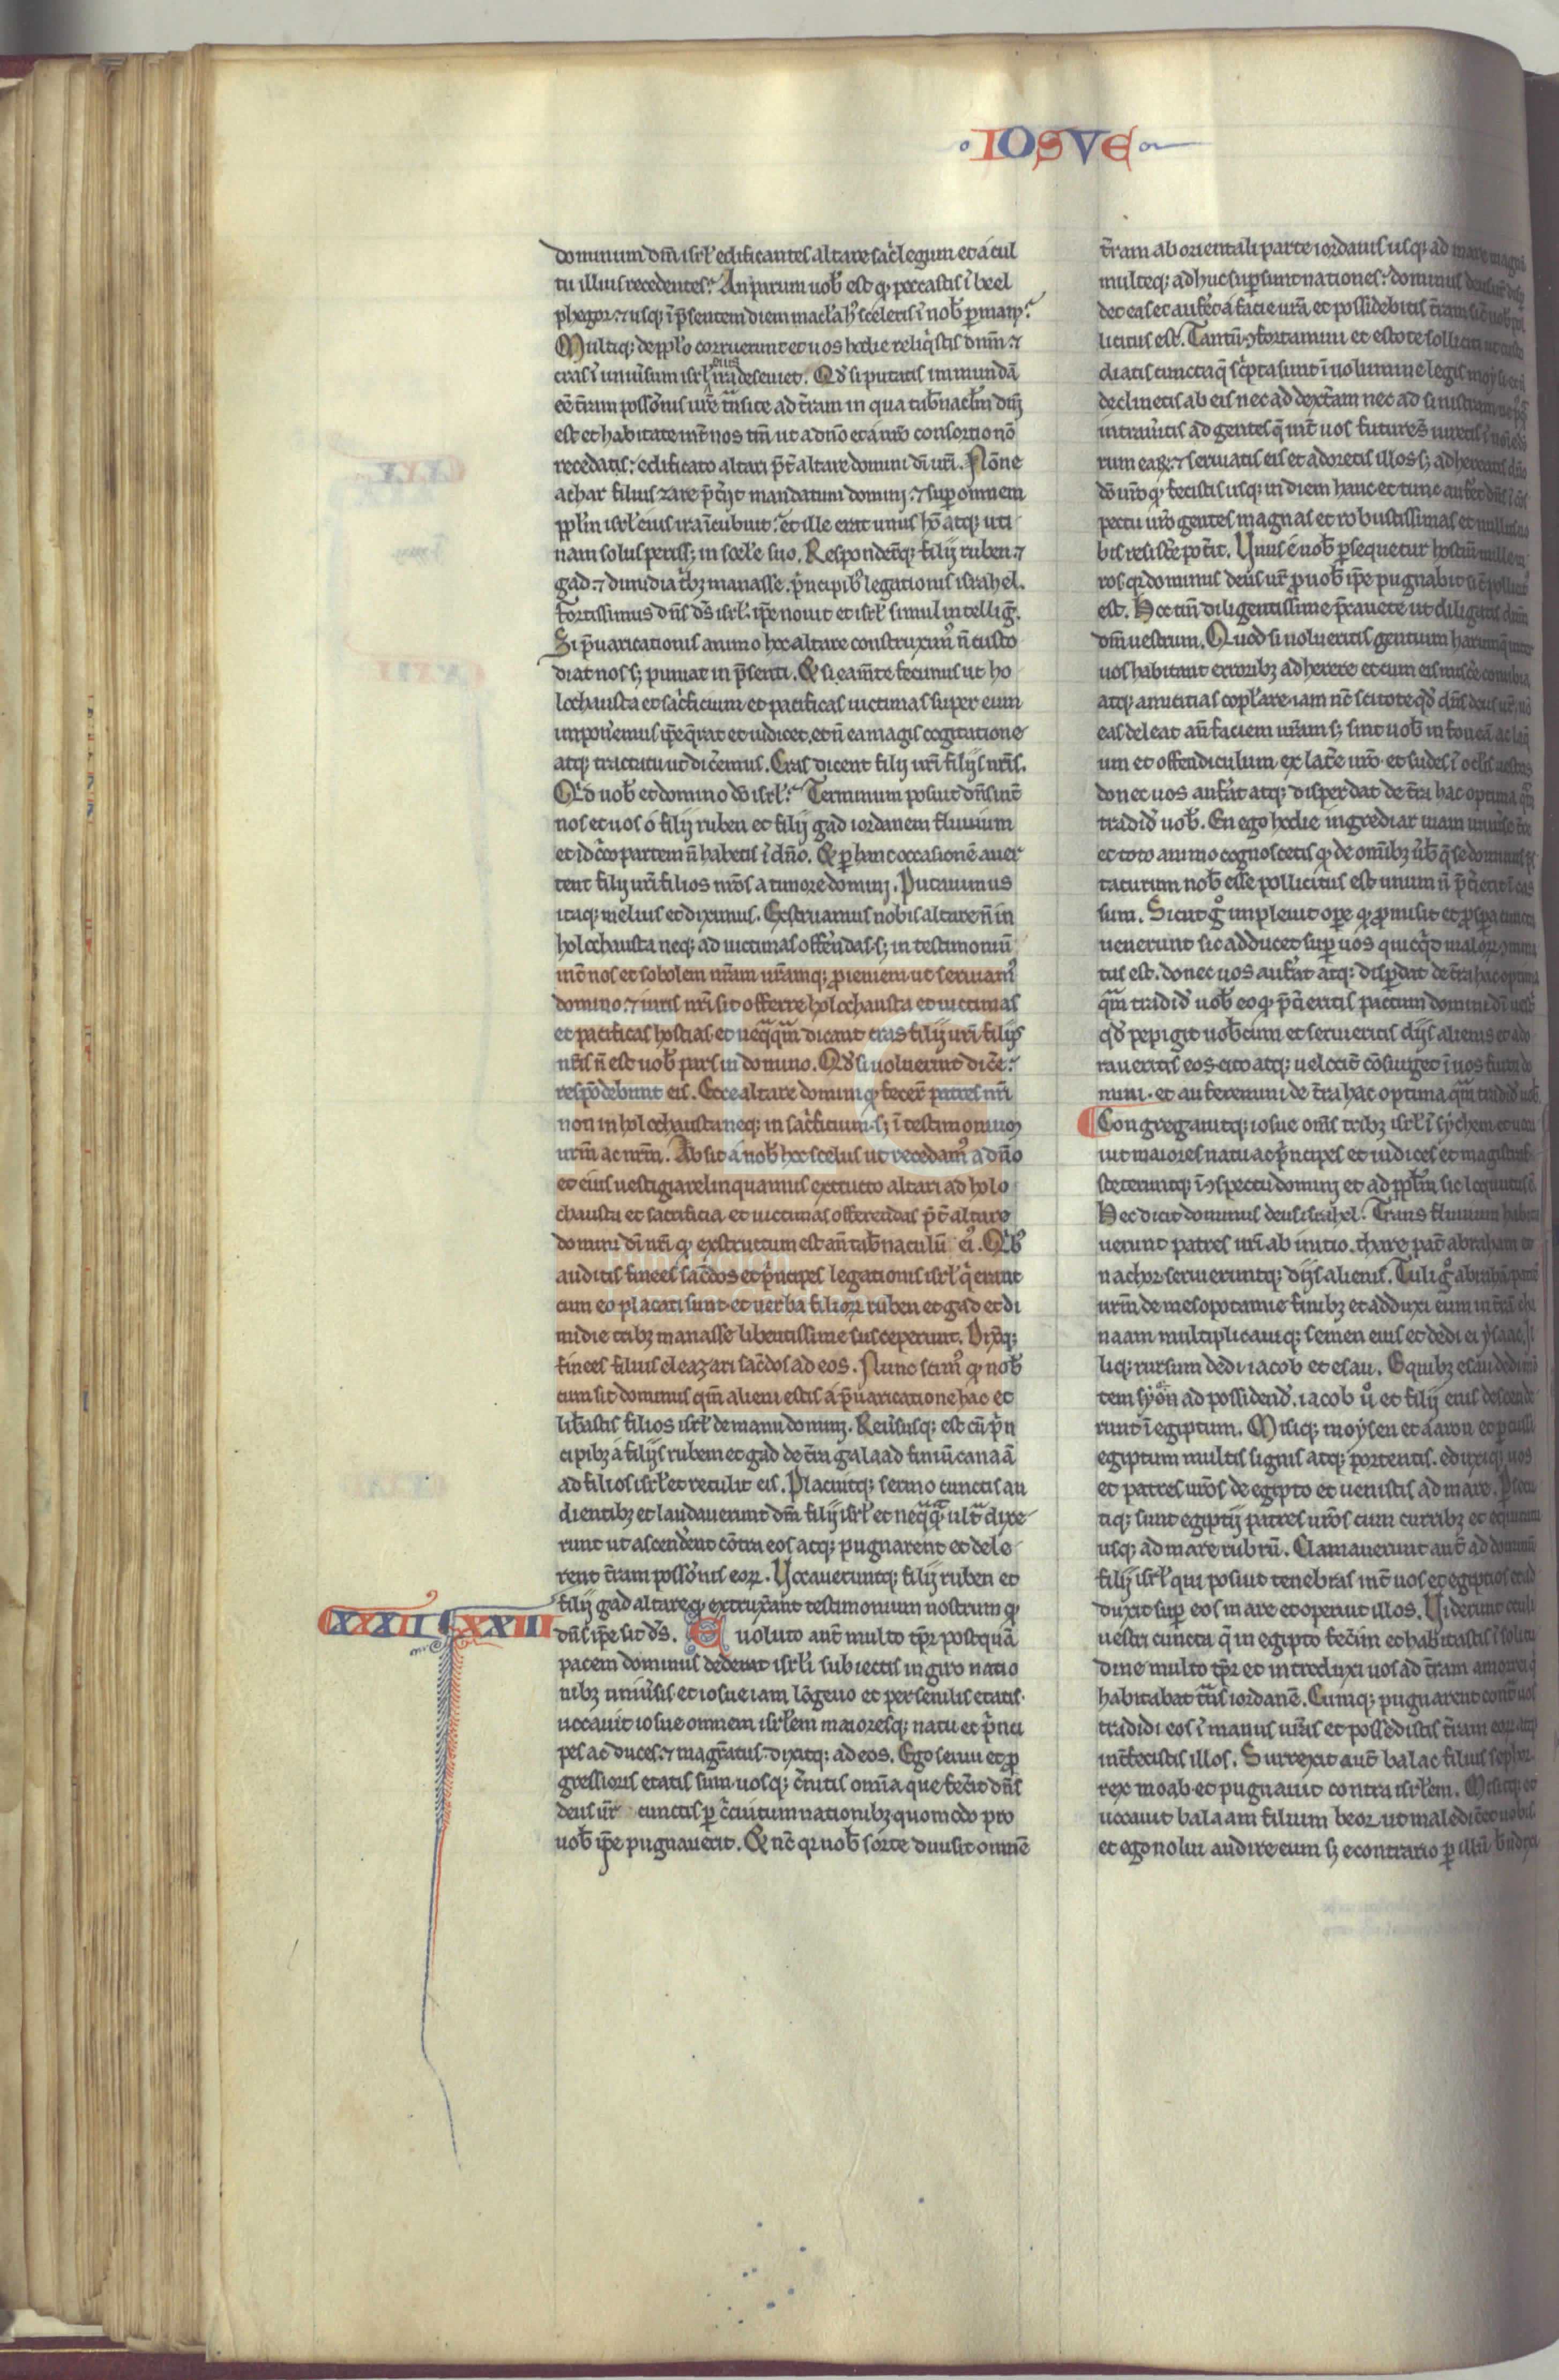 IOSVE
dominum dm̄ isrl' edificantes altare sac̉legum et a cul
tu illius recedentes? An parum uob̄ est qꝫ peccastis ī beel
phegor. ⁊ usqꝫ ī p̄sentem diem macl'a hꝰ sceleris ī nob̄ ꝑmanꝫ?
Multiqꝫ de ppl'o corruerunt et uos hodie reliq̉stis dn̄m. ⁊
cras ī uniūsum isrl' ira eius deseuiet. Qd̄ si putatis immundā
eē t̄ram possōnis ur̄e t̄nsite ad t̄ram in qua tab̄nacl'm dn̄j
est et habitate int̄ nos tm̄ ut a dn̄o et a nr̄o consortio nō
recedatis: edificato altari p̄t̄ altare domini dī nr̄i. Nōne
achar filius zare p̄t̄ijt mandatum dominj. ⁊ suꝑ omnem
ppl'm isrl' eius ira īcubuit: et ille erat unus hō atqꝫ uti
nam solus perissꝫ in scel'e suo. Responder̄tqꝫ filij ruben. ⁊
gad. ⁊ dimidia t̉bꝫ manasse. p̉ncipibꝫ legationis israhel.
fortissimus dn̄s ds̄ isrl'. ip̄e nouit et isrl' simul intelliḡ.
Si p̄uaricationis animo hoc altare construximꝰ n̄ custo
diat nos sꝫ puniat in p̄senti. & si ea m̄te fecimus ut ho
lochausta et sac̉ficium et pacificas uictimas super eum
imponemus ip̄e q̄rat et iudicet. et n̄ ea magis cogitatione
atqꝫ tractatu ut dic̄emus. Cras dicent filij ur̄i filijs nr̄is.
Qd̄ uob̄ et domino dō isrl'? Terminum posuit dn̄s int̄
nos et uos o filij ruben et filij gad iordanem fluuium
et idc̉co partem n̄ habetis ī dn̄o. & ꝑ hanc occasionē auer
tent filij ur̄i filios nr̄os a timore dominj. Putauimus
itaqꝫ melius et diximus. Exstruamus nobis altare n̄ in
holochausta neqꝫ ad uictimas offerendas. sꝫ in testimoniū
int̄ nos et sobolem nr̄am ur̄amqꝫ ꝓieniem. ut seruiamꝰ
domino. ⁊ iuris nr̄i sit offerre holochausta et uictimas
et pacificas hostias. et neq̄q̄m dicant cras filij ur̄i filijs
nr̄is n̄ est uob̄ pars in domino. Qd̄ si uoluerint dic̄e:
respōdebunt eis. Ecce altare domini qꝫ fecer̄ patres nr̄i
non in holochausta neqꝫ in sac̉ficium. sꝫ ī testimonium
ur̄m ac nr̄m. Absit a nob̄ hoc scelus ut recedamꝰ a dn̄o
et eius uestigia relinquamus exstructo altari ad holo
chausta et sacrificia et uictimas offerendas p̄t̄ altare
domini dī nr̄i qꝫ exstructum est an̄ tab̄naculū eiꝰ. Qꝫb̄
auditis finees sac̄dos et p̉ncipes legationis isrl' q̉ erant
cum eo placati sunt. et uerba filioꝝ ruben et gad et di
midie tribꝫ manasse libentissime susceperunt. Dix̄qꝫ
finees filius eleazari sac̄dos ad eos. Nunc scimꝰ qꝫ nob̄
cum sit dominus qm̄ alieni estis a p̄uaricatione hac et
lib̄astis filios isrl' de manu dominj. Reūsusqꝫ est cū p̉n
cipibꝫ a filijs ruben et gad de t̄ra galaad finiū canaā
ad filios isrl' et retulit eis. Placuitqꝫ sermo cunctis au
dientibꝫ et laudauerunt dm̄ filij isrl' et neq̄q̄m ult̄ dixe
runt ut ascenderent cōtra eos atqꝫ pugnarent et dele
rent t̄ram possōnis eoꝝ. Uocaueruntqꝫ filij ruben et
filij gad altare qꝫ extrux̄ant testimonium nostrum qꝫ
XXXII XXIII dn̄s ip̄e sit ds̄. Euoluto aut̄ multo tp̄r postquā
pacem dominus dederat isrl'i subiectis in giro natio
nibꝫ uniūsis. et iosue iam lōgeuo et persenilis etatis.
uocauit iosue omnem isrl'em maioresqꝫ natu et p̉nci
pes ac duces. ⁊ magr̄atus. dixitqꝫ ad eos. Ego senui et ꝓ
gressioris etatis sum. uosqꝫ c̄nitis omīa que fec̄it dn̄s
deus ur̄ cunctis ꝑ c̉cuitum nationibꝫ quomodo pro
uob̄ ip̄e pugnauerit. & nc̄ qꝛ uob̄ sorte diuisit omnē
t̄ram ab orientali parte iordanis usqꝫ ad mare magnū
multeqꝫ adhuc suꝑsunt nationes: dominus deus ur̄
det eas et auferet a facie ur̄a et possidebitis t̄ram sic̄ uob̄
licitus est. Tantū ꝯfortamini et estote solliciti ut custo
diatis cunctaq̄ sc̉pta sunt ī uolumine legis moysi et n̄
declinetis ab eis nec ad dext̄am nec ad sinistram ne
intrauitis ad gentes q̄ int̄ uos future s̄t iuretis ī
rum eaꝝ. ⁊ seruiatis eis et adoretis illos sꝫ adhereatis dn̄o
dō ur̄o qꝫ fecistis usqꝫ in diem hanc et tunc aufet dn̄s ī cōs
pectu ur̄o gentes magnas et robustissimas et nullus uo
bis resist̄e pot̄it. Unus e uob̄ ꝑsequetur hostiū mille ui
ros qꝛ dominus deus ur̄ ꝓ uob̄ ip̄e pugnabit sic̄ pollicitꝰ
est. Hoc tm̄ diligentissime p̄cauete ut diligatis dn̄m
dm̄ uestrum. Quod si uolueritis gentium harum q̄ int̄
uos habitant erroribꝫ adherere et cum eis misc̄e conubia
atqꝫ amicitias copl'are. iam nc̄ scitote qd̄ dn̄s deus ur̄ nō
eas deleat an̄ faciem ur̄am sꝫ sint uob̄ in foueā ac laq̄
um et offendiculum ex lat̄e ur̄o. et sudes ī oclis uestris
donec uos auferat atqꝫ disperdat de t̄ra hac optima q̄m
tradid̄ uob̄. En ego hodie ingrediar uiam uniūse t̄re
et toto animo cognoscetis qꝫ de omībꝫ ūb̄ q̄ se dominus p̄
taturum nob̄ esse pollicitus est unum n̄ p̄t̄ierit ī cas
sum. Sicut gͦ impleuit oꝑe qꝫ ꝓmisit et ꝓspa cuncta
uenerunt sic adducet suꝑ uos quicq̉d maloꝝ ꝯmina
tus est. donec uos auferat atqꝫ disꝑdat de t̄ra hac optima
q̄m tradid̄ uob̄ eo qꝫ p̄t̄ieritis pactum domini dī uest̄
qd̄ pepigit uob̄cum et serueritis dijs alienis et ado
raueritis eos. cito atqꝫ uelocit̄ cōsurget ī uos furor do
mini. et auferemini de t̄ra hac optima q̄m tradid̄ uob̄.
Congregauitqꝫ iosue om̄s tribꝫ isrl' ī sychem et uoca
uit maiores natu ac p̉ncipes et iudices et magistros
steteruntqꝫ ī ꝯspectu dominj et ad ppl'm sic loqutus ē
Hec dicit dominus deus israhel. Trans fluuium habita
uerunt patres ur̄i ab initio. thare pat̄ abraham et
nachor. serueruntqꝫ dijs alienis. Tuli gͦ abrahā patrē
ur̄m de mesopotamie finibꝫ et adduxi eum in t̄rā cha
naam multiplicauiqꝫ semen eius et dedi ei ysaac. Il
liqꝫ rursum dedi iacob et esau. Equibꝫ esau dedi mō
tem syōn ad possidend̄. iacob uͦ et filij eius descende
runt ī egiptum. Misiqꝫ moysen et aaron et ꝑcussi
egiptum multis signis atqꝫ portentis. eduxiqꝫ uos
et patres ur̄os de egipto et uenistis ad mare. Persecu
tiqꝫ sunt egiptij patres ur̄os cum curribꝫ et equitatu
usqꝫ ad mare rubrū. Clamauerunt aut̄ ad dominū
filij isrl' qui posuit tenebras int̄ uos et egiptios et ad
duxit suꝑ eos mare et operuit illos. Uiderunt oculi
uestri cuncta q̄ in egipto fec̄im et habitastis ī solitu
dine multo tp̄r et introduxi uos ad t̄ram amorrei q̉
habitabat t̄ns iordanē. Cumqꝫ pugnarent cont̄ uos
tradidi eos ī manus ur̄as et possedistis t̄ram eoꝝ atqꝫ
int̄fecistis illos. Surrexit aut̄ balac filius sephor
rex moab. et pugnauit contra isrl'em. Misitqꝫ et
uocauit balaam filium beor. ut maledic̄et uobis
et ego nolui audire eum sꝫ econtrario ꝑ illū b̄ndixi